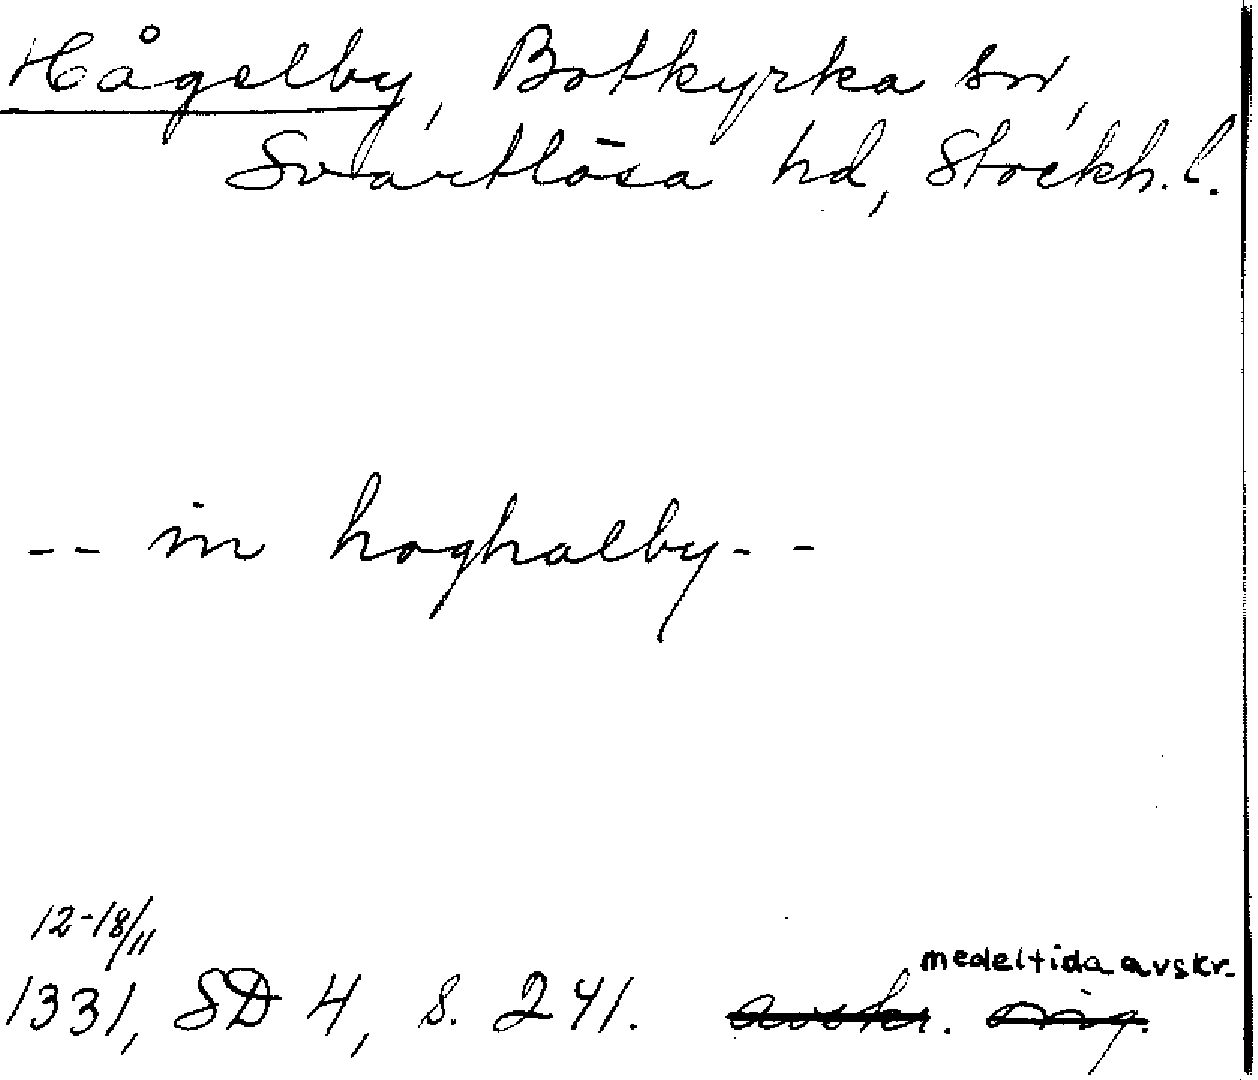 Hågelby, Botkyrka sn,
Svartlösa hd, Stockh. l.
-- in hoghalby--
12-18/11
medeltida avskr.
1331, SD 4, s. 241. avskr. orig.